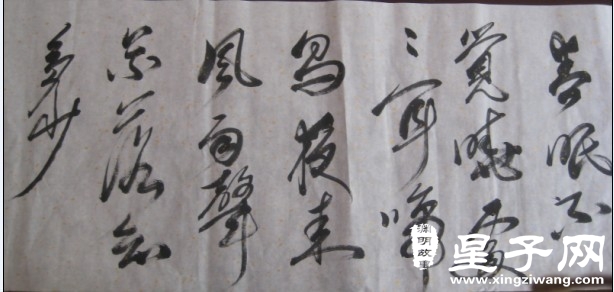 春眠不
覺曉處
〻闻啼
鳥夜来
風雨聲
花落知
多少
渊明故里
星子网
www.xingziwang.com